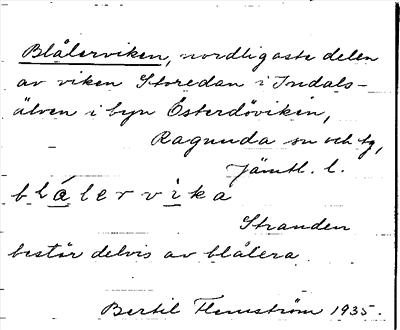 Blålerviken, nordligaste delen
av viken Storedan i Indals-
älven i byn Österdöviken,
Ragunda sn och tg,
Jämtl. l.
blålervika
Stranden
består delvis av blålera.
Bertil Flemström 1935.